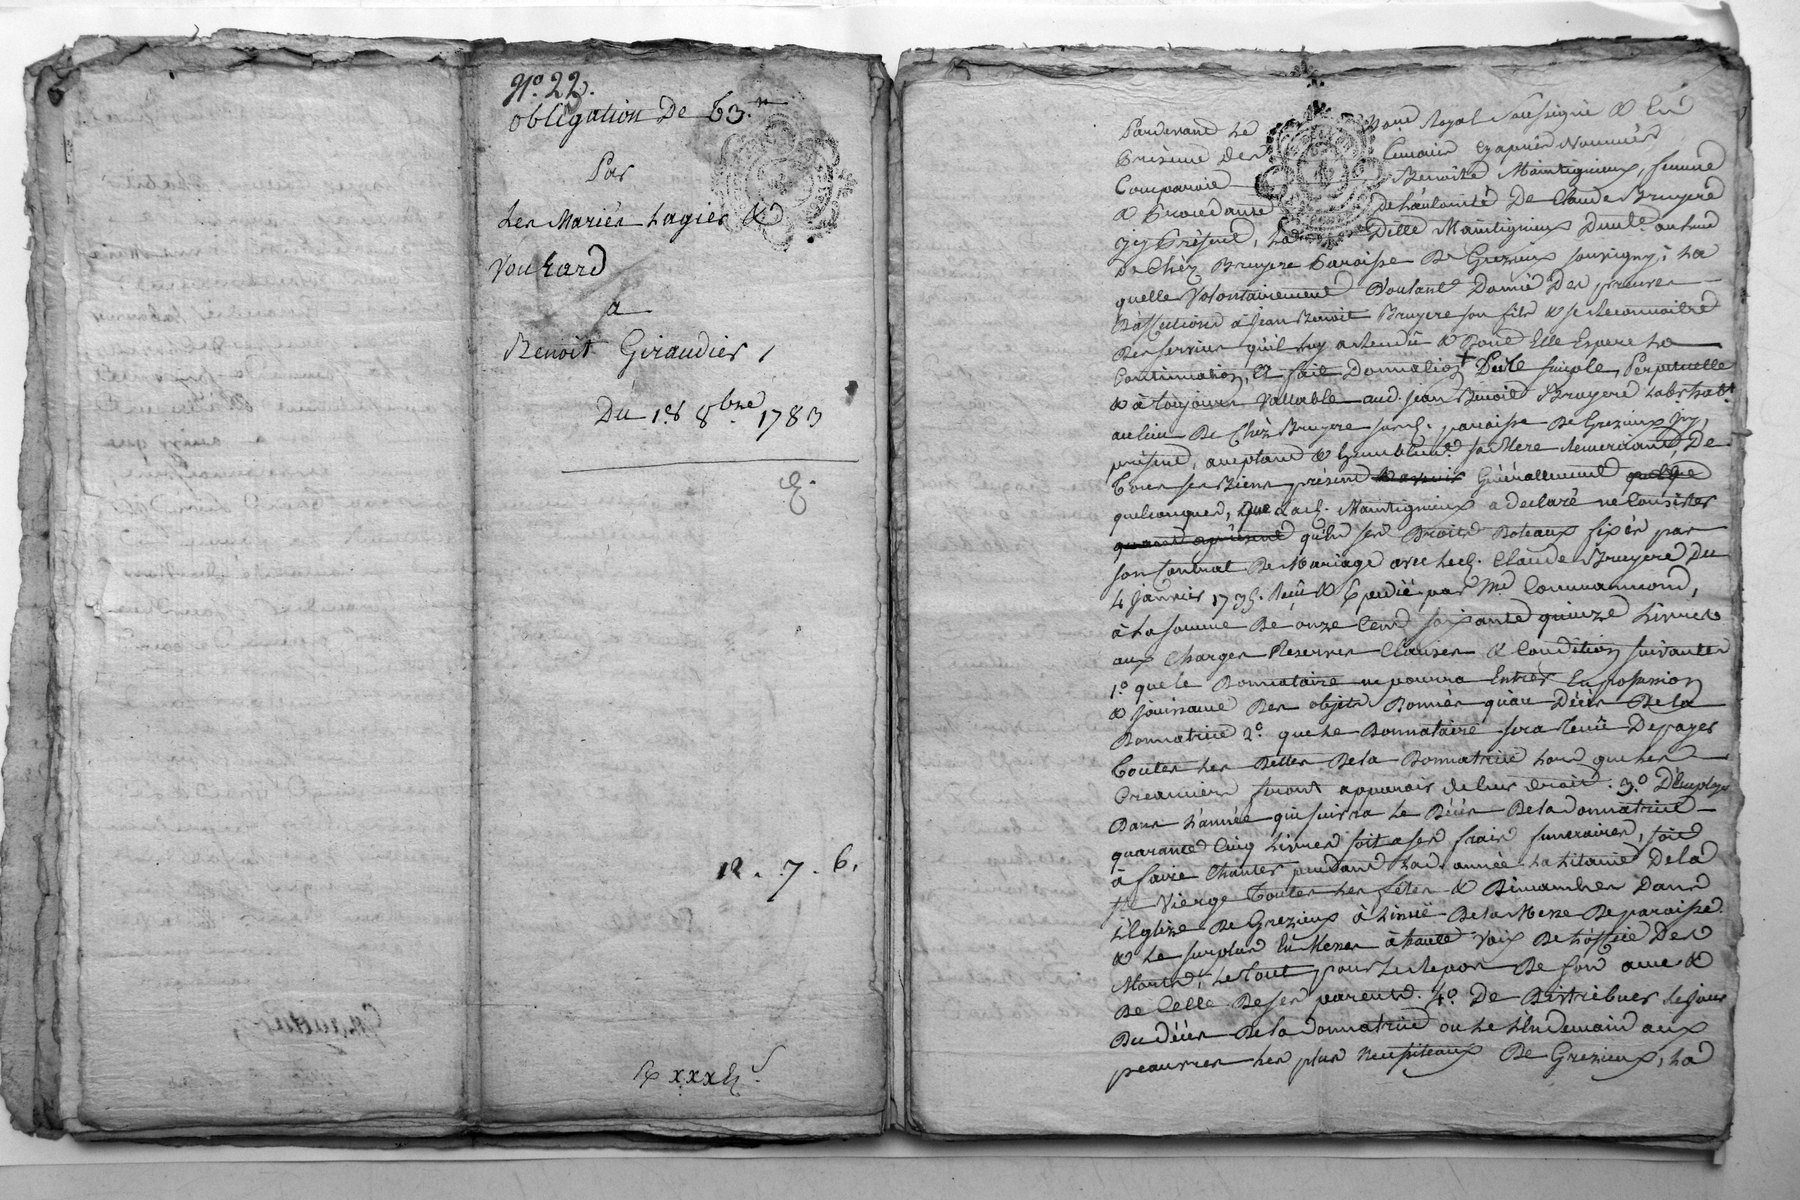 N.º 22.
obligation De 63.ᵗᵗ
Par
Les Mariés Lagier &
Vouhard
a
Benoît Giraudier /
Du 18 8bre 1783
12. 7. 6.
Pardevant Le No.re Royal Soussigné & En
Présence Des Témoins cy après Nommés
Comparoit Benoite Maintignieux, femme
& Procedante De l'autorité De Claude Bruyere
icy Présent, Lad. Delle Maintigneux
De Chéz Bruyere Paroisse De Grezieux souvigny; La
quelle Volontairement Voulant Donner Des preuves
D'affection à Jean Benoit Bruyere son fils & se Reconnoitre
Des services quil luy a rendu & Dont Elle Espere La
Continuation, Et fait Donnation Pure simple, Perpetuelle
& à toujours Vallable aud. Jean Benoit Bruyere Labr habt.
au lieu De Chèz Bruyere susd. paroisse De Grezieux Icy
présent, acceptant & humblemt. sa Mere Remerciant, De
Tous ses Biens présent & avenir Généralement quelque
quelconques, que lad. Maintigneux a declaré ne Consister
quant aprésent qu'En ses Droits Doteaux fixés par
son Contrat De Mariage avec led. Claude Bruyere Du
4 Janvier Reçu & Expedié par Me. Commarmond,
à La somme De onze Cent soixante quinze Livres
aux Charges Reserves Clauses & Condition suivantes
1.º que le Donnataire ne pourra Entrer En possession
& Jouissance Des objets Donnés qu'au Décès De la
Donnatrice 2.º que Le Donnataire sera Tenu De payer
Toutes Les Dettes De la Donnatrice Lors que Les
Creanciers feront apparoir de leur droit. 3.º D'Employer
Dans L'année qui suivra Le Décès De la Donnatrice
quarante Cinq Livres soit a ses frais funeraires, soit
à faire Chanter pendant Lad. année La Litanie De la
Ste Vierge Toutes Les fêtes & Dimanches Dans
L'Eglize De Grezieux à L'issuë De la Messe De paroisse
& Le surplus En Messes à haute Voix De L'office Des
Morts, Le Tout pour Le Repos De son ame &
De Celle De ses parents. 4.º De Distribuer le Jour
Du décès De la Donnatrice ou Le L'Endemain aux
peauvres Les plus De Grezieux, La